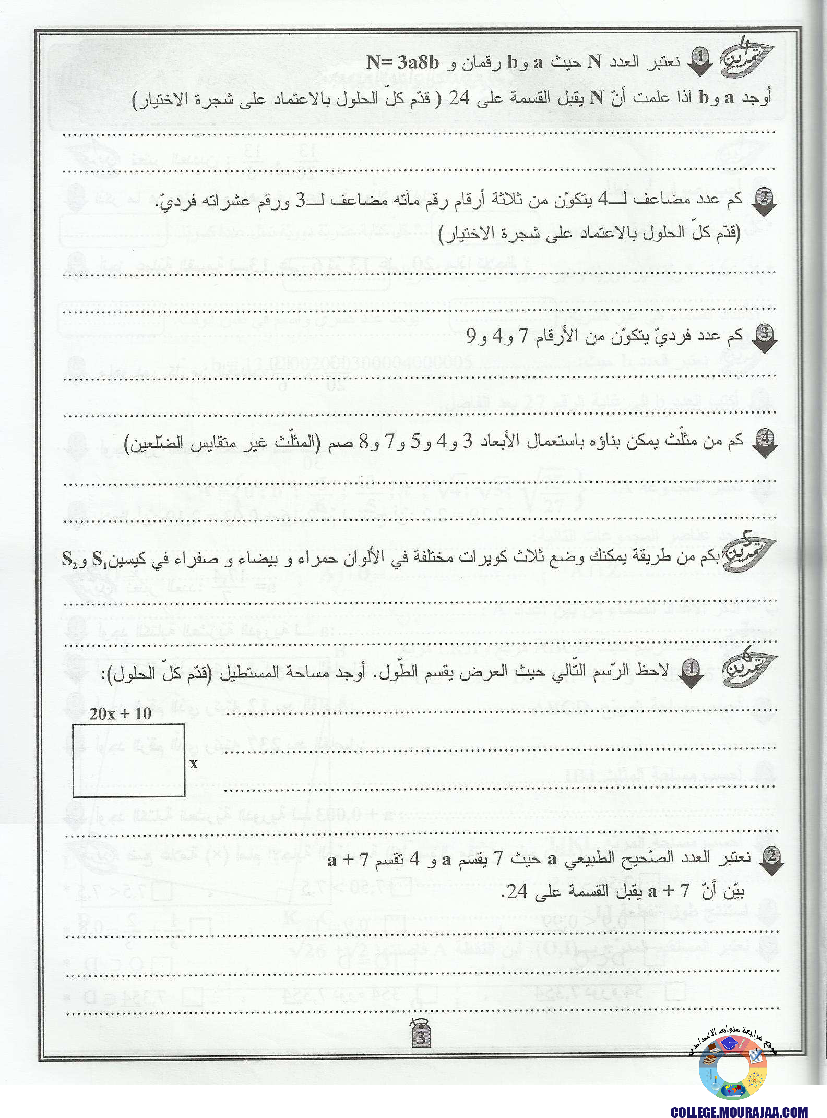 تمرين 4
1 نعتبر العدد N حيث a وb رقمان و N= 3a8b
أوجد a وb اذا علمت أنّ N يقبل القسمة على 24 ( قدّم كلّ الحلول بالاعتماد على شجرة الاختيار)
2 كم عدد مضاعف لــ4 يتكوّن من ثلاثة أرقام رقم مآته مضاعف لــ3 ورقم عشراته فرديّ.
(قدّم كلّ الحلول بالاعتماد على شجرة الاختيار)
3 كم عدد فرديّ يتكوّن من الأرقام 7 و4 و9
4 كم من مثلّث يمكن بناؤه باستعمال الأبعاد 3 و4 و5 و7 و8 صم (المثلّث غير متقايس الضلعين)
تمرين 5
بكم من طريقة يمكنك وضع ثلاث كويرات مختلفة في الألوان حمراء و بيضاء و صفراء في كيسين S₁ وS₂
تمرين 6
1 لاحظ الرّسم التّالي حيث العرض يقسم الطّول. أوجد مساحة المستطيل (قدّم كلّ الحلول):
20x + 10
x
2 نعتبر العدد الصّحيح الطبيعي a حيث 7 يقسم a و 4 تقسم a + 7
بيّن أنّ a + 7 يقبل القسمة على 24.
3
موقع مراجعة
COLLEGE.MOURAJAA.COM